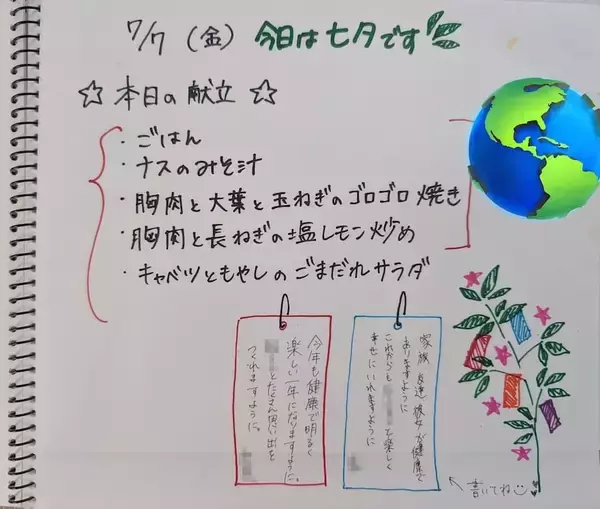 7/7 (金) 今日は七夕です
☆ 本日の献立 ☆
・ごはん
・ナスのみそ汁
・胸肉と大葉と玉ねぎのゴロゴロ焼き
・胸肉と長ねぎの塩レモン炒め
・キャベツともやしのごまだれサラダ
今年も健康で明るく
楽しい一年になりますように。
とたくさん思い出を
つくれますように。
家族、友達、彼女が健康で
ありますように
これからも と楽しく
幸せにいれますように
書いてね